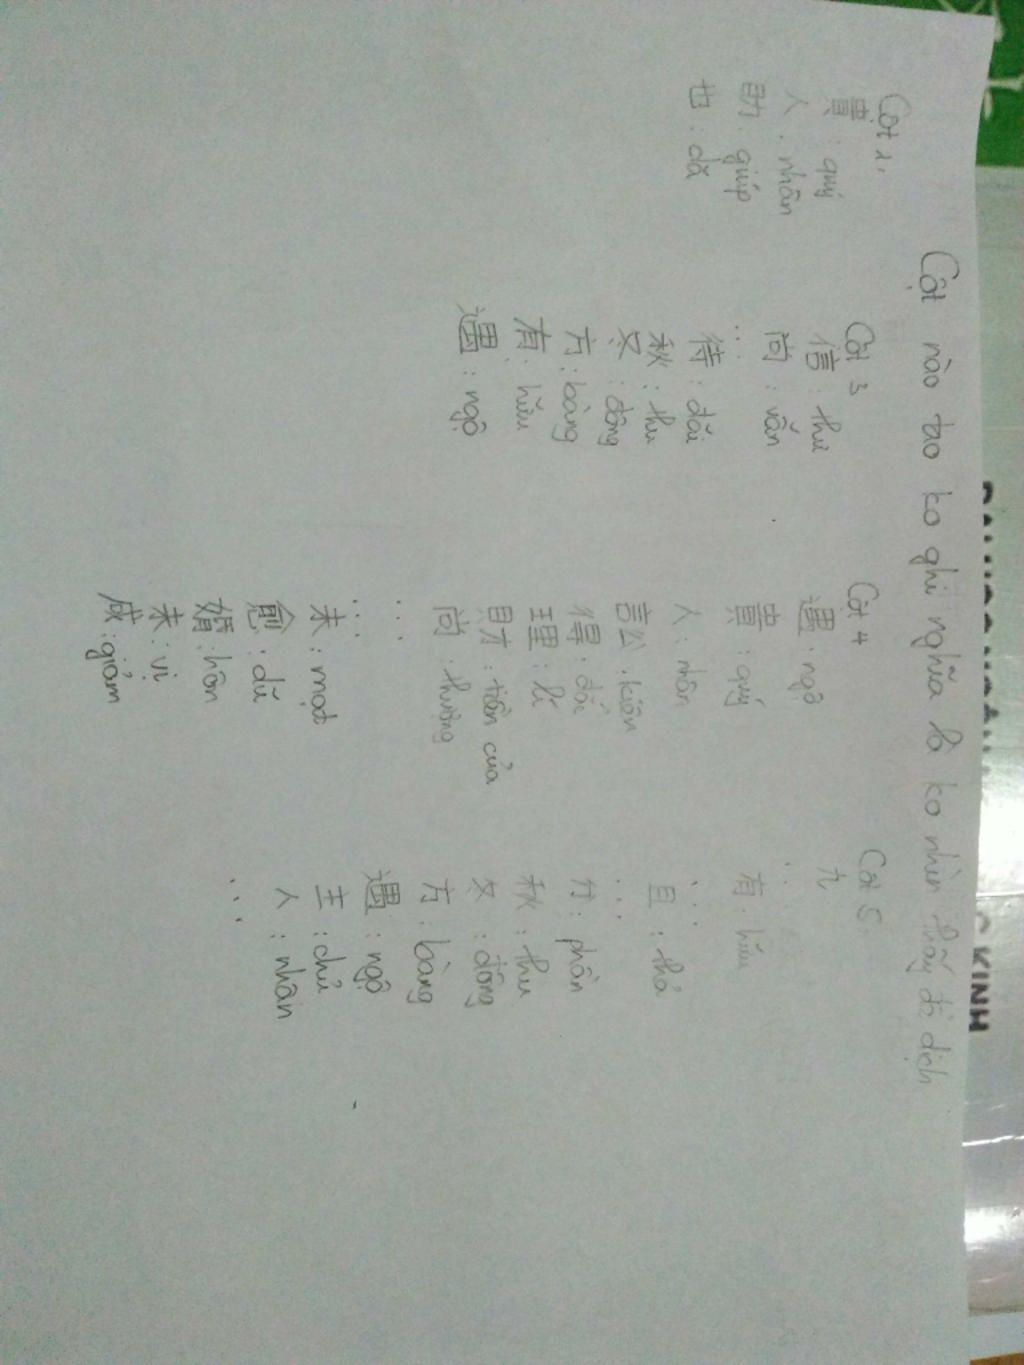 Cột nào tao ko ghi nghĩa là ko nhìn thấy để dịch
Cột 1.
貴: quý
人: nhân
助: giúp
也: dã
Cột 3
信: thư
尚: vẫn
...
待: đãi
秋: thu
冬: đông
方: bàng
有: hữu
遇: ngộ
Cột 4
遇: ngộ
貴: quý
人: nhân
訟: kiện
得: đắc
理: lí
財: tiền của
尚: thường
...
...
末: mạt
愈: dũ
婚: hôn
未: vị
咸: giảm
Cột 5.
九
...
有: hữu
...
且: thả
...
分: phân
秋: thu
冬: đông
方: bàng
遇: ngộ
主: chủ
人: nhân
...
KINH